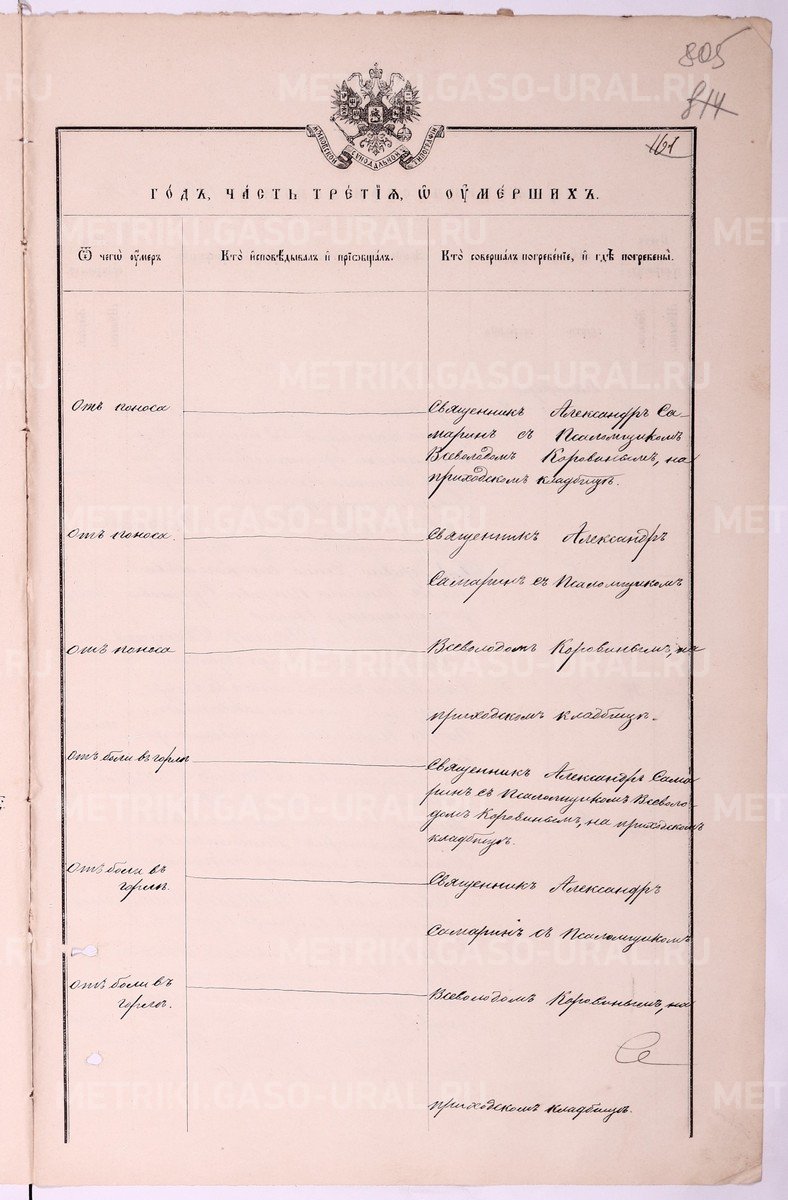 805
814
161
МОСКОВСКОЙ СѴНОДАЛЬНОЙ ТИПОГРАФІИ
ГО́ДЪ, ЧА́СТЬ ТРЕ́ТІѦ, Ѡ҆ ОУ҆МЕ́РШИХЪ.
Ѿ чегѡ̀ оу҆́меръ
Кто̀ и҆сповѣ́дывалъ и҆ прїѡбща́лъ.
Кто̀ соверша́лъ погребе́нїе, и҆ гдѣ̀ погребены̀.
Отъ поноса
Священникъ Александръ Са-
маринъ съ Псаломщикомъ
Всеволодомъ Коровинымъ, на
приходскомъ кладбищѣ.
Отъ поноса.
Священникъ Александръ
Самаринъ съ Псаломщикомъ
Отъ поноса
Всеволодомъ Коровинымъ, на
приходскомъ кладбищѣ.
Отъ боли въ горлѣ
Священникъ Александръ Сама
ринъ съ Псаломщикомъ Всеволо-
домъ Коровинымъ, на приходскомъ
кладбищѣ.
Отъ боли въ
горлѣ.
Священникъ Александръ
Самаринъ съ Псаломщикомъ
Отъ боли въ
горлѣ.
Всеволодомъ Коровинымъ, на
приходскомъ кладбищѣ.
METRIKI.GASO-URAL.RU